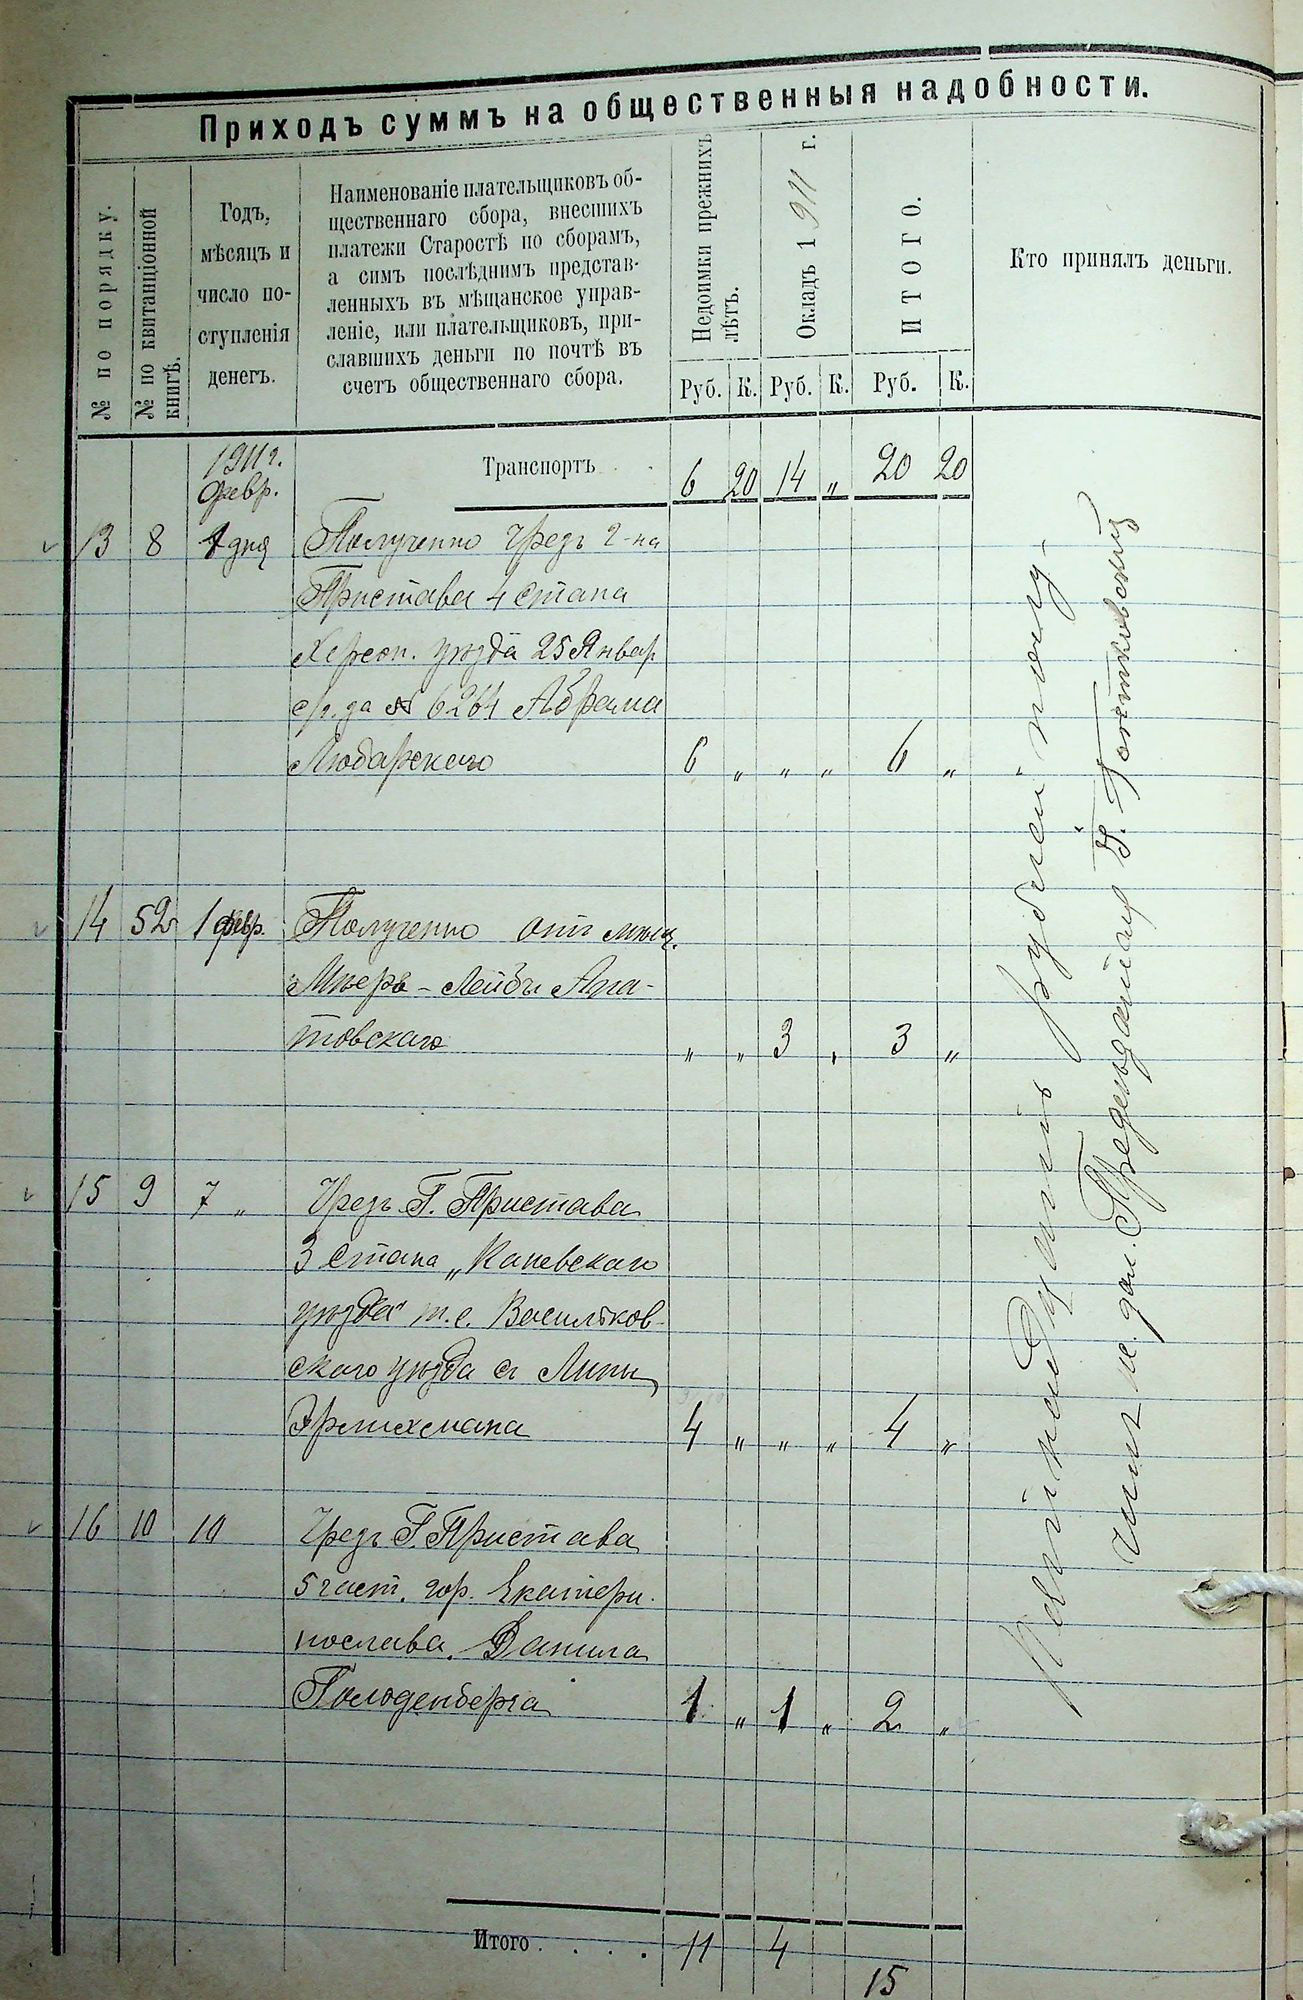 Приходъ суммъ на общественныя надобности.
№ по порядку.
№ по квитанціонной книгѣ.
Годъ,
мѣсяцъ и
число по-
ступленія
денегъ.
Наименованіе плательщиковъ об-
щественнаго сбора, внесшихъ
платежи Старостѣ по сборамъ,
а симъ послѣднимъ представ-
ленныхъ въ мѣщанское управ-
леніе, или плательщиковъ, при-
славшихъ деньги по почтѣ въ
счетъ общественнаго сбора.
Недоимки прежнихъ лѣтъ.
Окладъ 1911 г.
ИТОГО.
Кто принялъ деньги.
Руб. К. Руб. К. Руб. К.
1911 г.
Февр.
Транспортъ 6 20 14 „ 20 20
13 8 1 дня Полученно чрезъ г-на
Пристава 4 стана
Херсон. уѣзда 25 Январ
с/г. за № 6264 Абрама
Любарскаго 6 „ „ „ 6 „
14 52 1 февр. Полученно отъ мѣщ.
Лейбы Ага-
товскаго „ „ 3 „ 3 „
15 9 7 „ Чрезъ Г. Пристава
3 стана „Каневскаго
уѣзда" т. е. Васильков-
скаго уѣзда съ Липы
4 „ „ „ 4 „
16 10 10 Чрезъ Г. Пристава
5 част. гор. Екатери-
нослава. Данила
Голоденберга 1 „ 1 „ 2 „
Итого . . . . 11 4
15
Пятнадцать рублей получ-
илъ